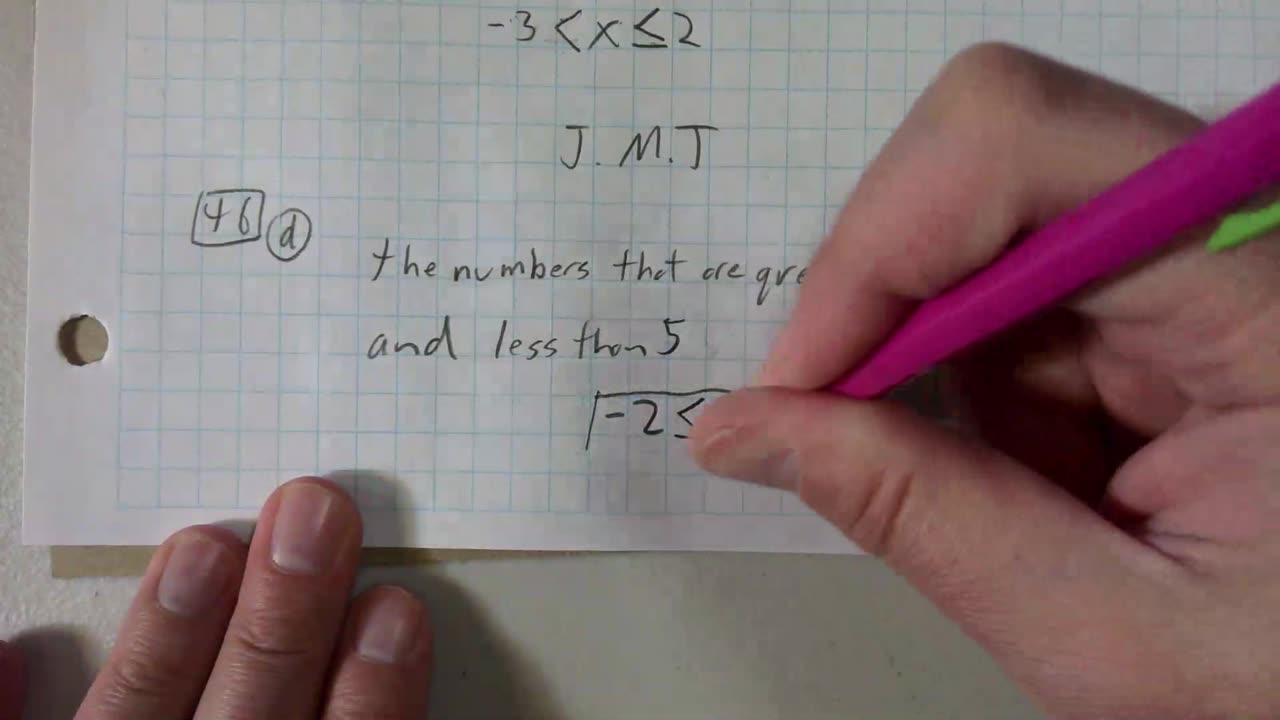 -3 < x ≤ 2
J.M.T
46 d
the numbers that are
and less than 5
-2 ≤